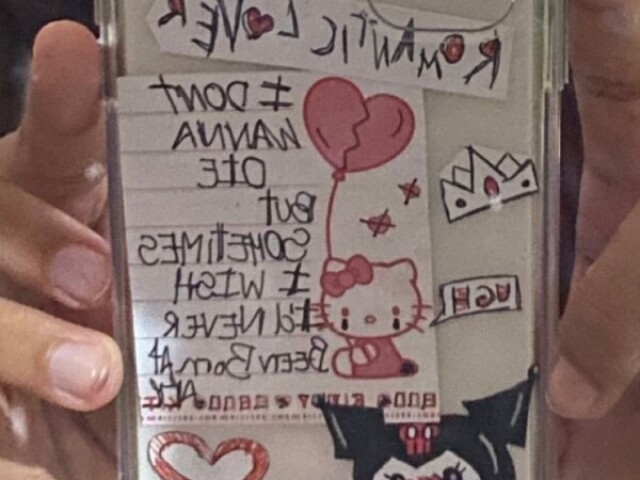 ROMANTIC LOVER
I DON'T
WANNA
DIE
BUT
SOMETIMES
I WISH
I'd NEVER
BEEN BORN At
ALL
UGH